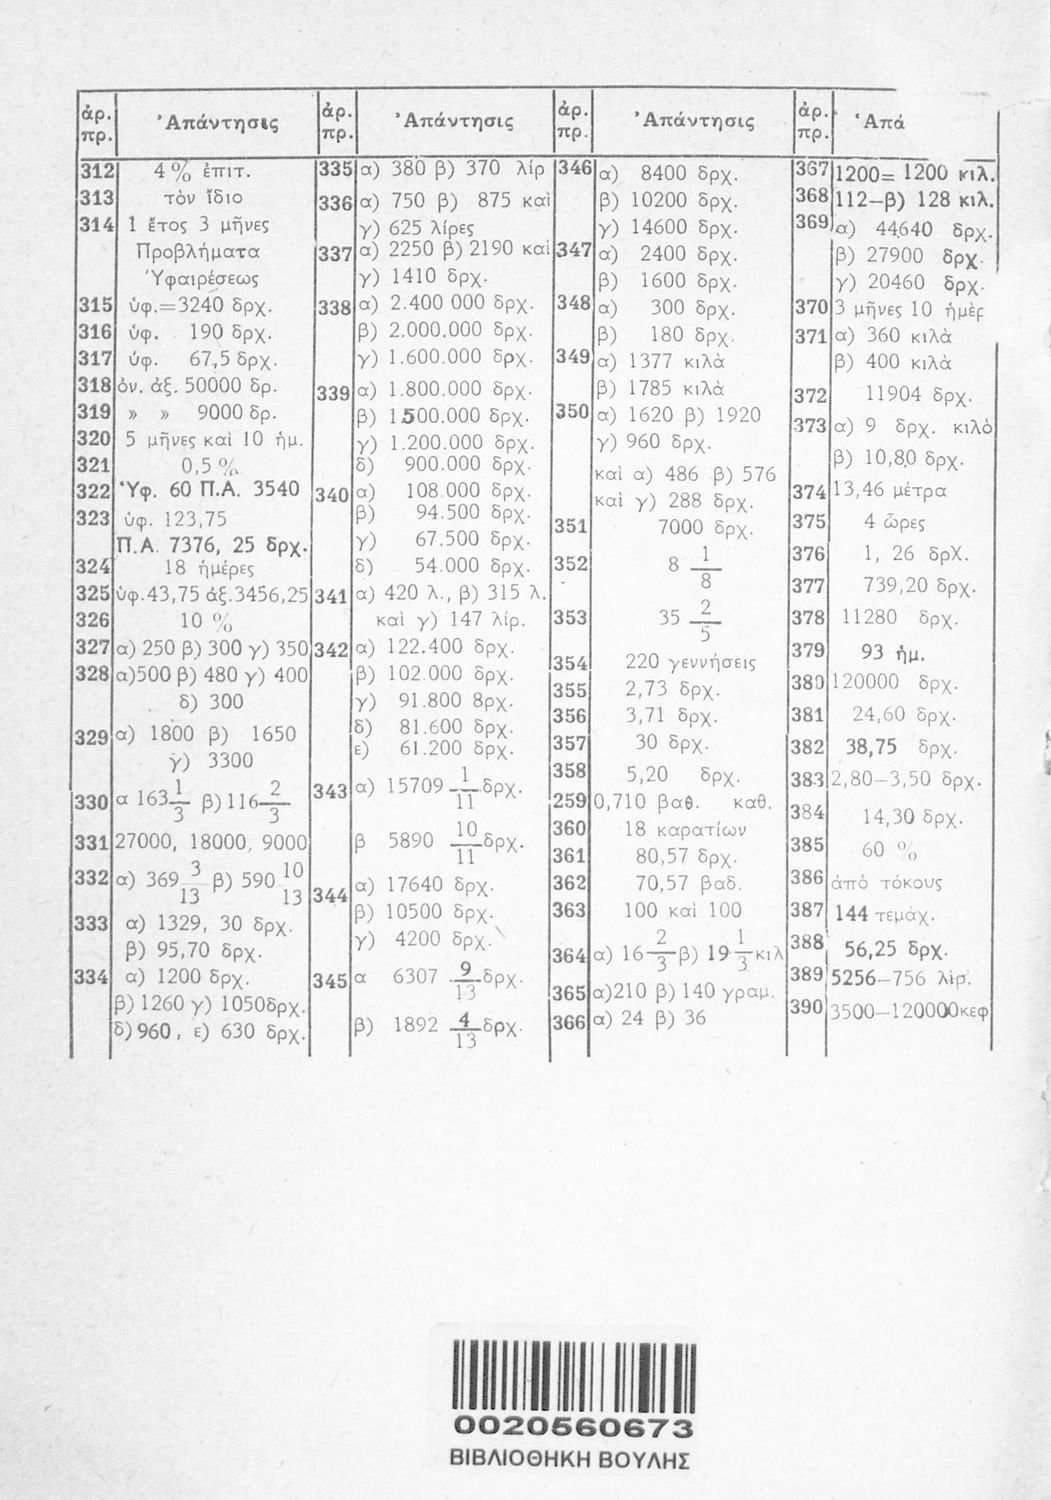 ἀρ. πρ. Ἀπάντησις
312 4 % ἐπιτ.
313 τὸν ἴδιο
314 1 ἔτος 3 μῆνες
Προβλήματα
Ὑφαιρέσεως
315 ὑφ.=3240 δρχ.
316 ὑφ. 190 δρχ.
317 ὑφ. 67,5 δρχ.
318 ὀν. ἀξ. 50000 δρ.
319 » » 9000 δρ.
320 5 μῆνες καὶ 10 ἡμ.
321 0,5 %
322 Ὑφ. 60 Π.Α. 3540
323 ὑφ. 123,75
Π.Α. 7376, 25 δρχ.
324 18 ἡμέρες
325 ὑφ.43,75 ἀξ.3456,25
326 10 %
327 α) 250 β) 300 γ) 350
328 α)500 β) 480 γ) 400
δ) 300
329 α) 1800 β) 1650
γ) 3300
330 α 163 1/3 β) 116 2/3
331 27000, 18000, 9000
332 α) 369 3/13 β) 590 10/13
333 α) 1329, 30 δρχ.
β) 95,70 δρχ.
334 α) 1200 δρχ.
β) 1260 γ) 1050δρχ.
δ) 960, ε) 630 δρχ.
ἀρ. πρ. Ἀπάντησις
335 α) 380 β) 370 λίρ
336 α) 750 β) 875 καὶ
γ) 625 λίρες
337 α) 2250 β) 2190 καὶ
γ) 1410 δρχ.
338 α) 2.400 000 δρχ.
β) 2.000.000 δρχ.
γ) 1.600.000 δρχ.
339 α) 1.800.000 δρχ.
β) 1.500.000 δρχ.
γ) 1.200.000 δρχ.
δ) 900.000 δρχ.
340 α) 108.000 δρχ.
β) 94.500 δρχ.
γ) 67.500 δρχ.
δ) 54.000 δρχ.
341 α) 420 λ., β) 315 λ.
καὶ γ) 147 λίρ.
342 α) 122.400 δρχ.
β) 102.000 δρχ.
γ) 91.800 8ρχ.
δ) 81.600 δρχ.
ε) 61.200 δρχ.
343 α) 15709 1/11 δρχ.
β 5890 10/11 δρχ.
344 α) 17640 δρχ.
β) 10500 δρχ.
γ) 4200 δρχ.
345 α 6307 9/13 δρχ.
β) 1892 4/13 δρχ.
ἀρ. πρ. Ἀπάντησις
346 α) 8400 δρχ.
β) 10200 δρχ.
γ) 14600 δρχ.
347 α) 2400 δρχ.
β) 1600 δρχ.
348 α) 300 δρχ.
β) 180 δρχ.
349 α) 1377 κιλὰ
β) 1785 κιλὰ
350 α) 1620 β) 1920
γ) 960 δρχ.
καὶ α) 486 β) 576
καὶ γ) 288 δρχ.
351 7000 δρχ.
352 8 1/8
353 35 2/5
354 220 γεννήσεις
355 2,73 δρχ.
356 3,71 δρχ.
357 30 δρχ.
358 5,20 δρχ.
259 0,710 βαθ. καθ.
360 18 καρατίων
361 80,57 δρχ.
362 70,57 βαδ.
363 100 καὶ 100
364 α) 16 2/3 β) 19 1/3 κιλ
365 α)210 β) 140 γραμ.
366 α) 24 β) 36
ἀρ. πρ. Ἀπά
367 1200= 1200 κιλ.
368 112–β) 128 κιλ.
369 α) 44640 δρχ.
β) 27900 δρχ.
γ) 20460 δρχ.
370 3 μῆνες 10 ἡμέρ
371 α) 360 κιλὰ
β) 400 κιλὰ
372 11904 δρχ.
373 α) 9 δρχ. κιλὸ
β) 10,80 δρχ.
374 13,46 μέτρα
375 4 ὧρες
376 1, 26 δρχ.
377 739,20 δρχ.
378 11280 δρχ.
379 93 ἡμ.
380 120000 δρχ.
381 24,60 δρχ.
382 38,75 δρχ.
383 2,80–3,50 δρχ.
384 14,30 δρχ.
385 60 %
386 ἀπὸ τόκους
387 144 τεμάχ.
388 56,25 δρχ.
389 5256–756 λιρ.
390 3500–120000κεφ
0020560673
ΒΙΒΛΙΟΘΗΚΗ ΒΟΥΛΗΣ